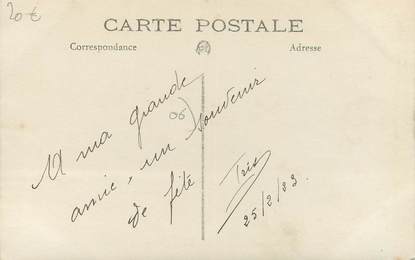 20 €
CARTE POSTALE
Correspondance
Adresse
06
A ma grande
amie, un souvenir
de fête
Iris
25/2/23